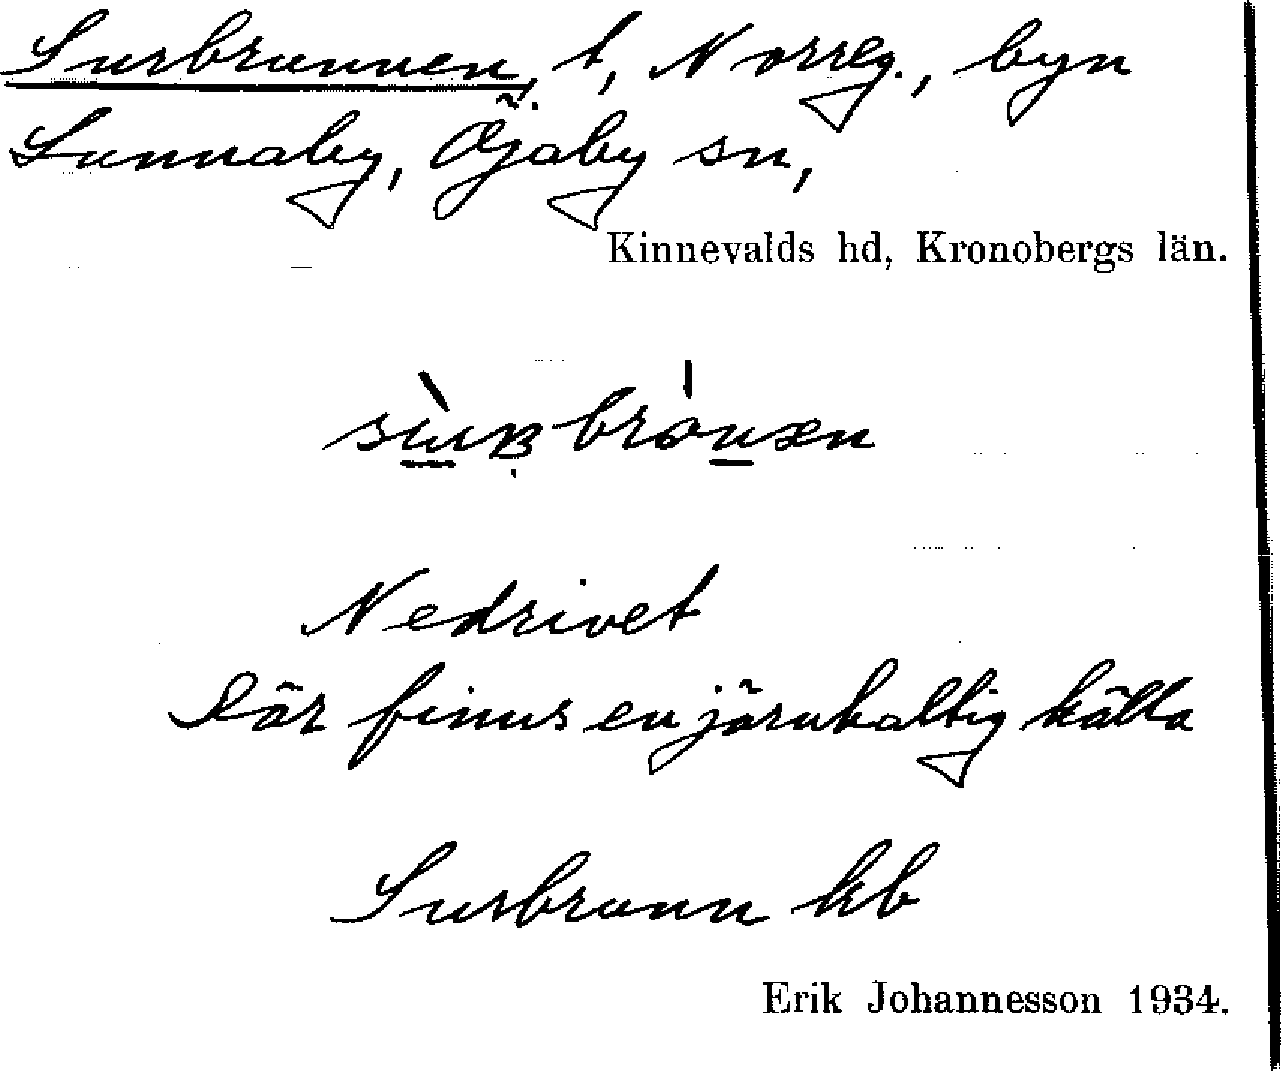 Surbrunnen, t, Norreg., byn
Sunnaby, Öjaby sn,
Kinnevalds hd, Kronobergs län.
Nedrivet
Där finns en järnhaltig källa
Surbrunn hb
Erik Johannesson 1934.